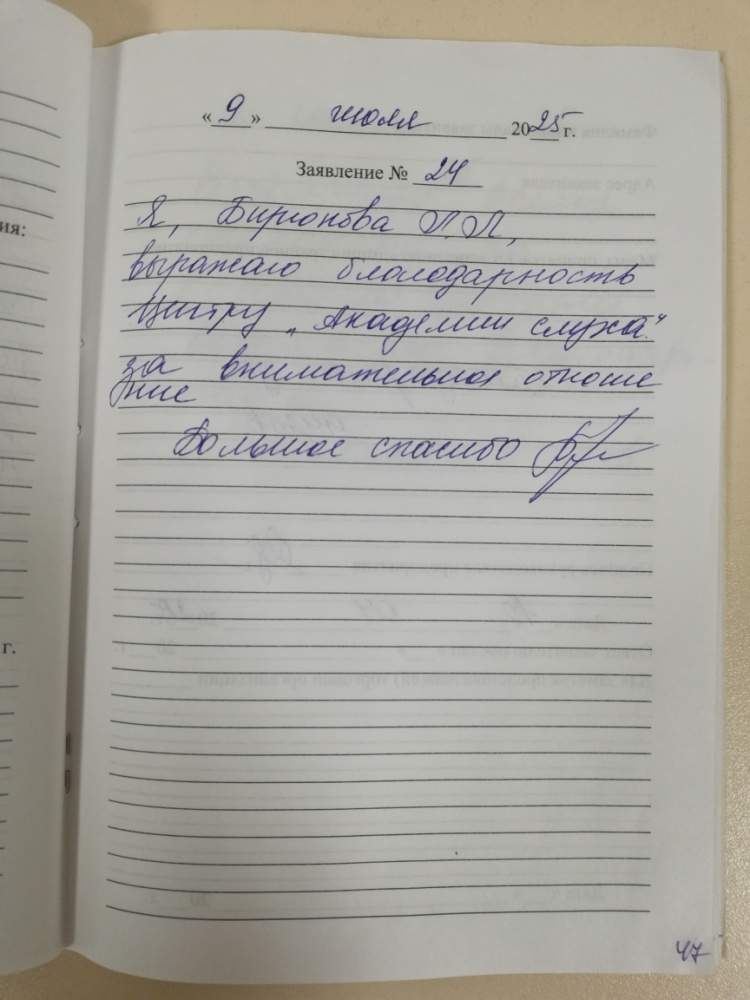 «9» июля 2025 г.
Заявление № 24
Я, Бирюкова Л.Л,
выражаю благодарность
Центру "Академии слуха"
за внимательное отноше
ние
Большое спасибо
ия:
г.
47